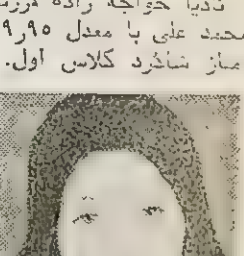 نادیا خواجه زاده فرزند
محمد علی با معدل ۹ر۹۵
ممتاز شاگرد کلاس اول.